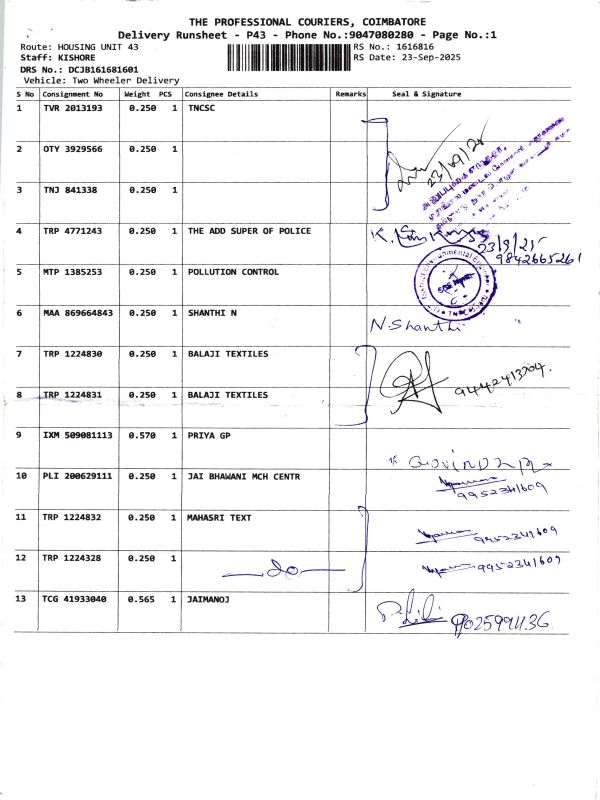 THE PROFESSIONAL COURIERS, COIMBATORE
Delivery Runsheet - P43 - Phone No.:9047080280 - Page No.:1
Route: HOUSING UNIT 43
RS No.: 1616816
Staff: KISHORE
RS Date: 23-Sep-2025
DRS No.: DCJB161681601
Vehicle: Two Wheeler Delivery
S No Consignment No Weight PCS Consignee Details Remarks Seal & Signature
1 TVR 2013193 0.250 1 TNCSC
23/09/25
2 OTY 3929566 0.250 1
3 TNJ 841338 0.250 1
4 TRP 4771243 0.250 1 THE ADD SUPER OF POLICE
23/9/25
9842665261
5 MTP 1385253 0.250 1 POLLUTION CONTROL
6 MAA 869664843 0.250 1 SHANTHI N
N. Shanthi
7 TRP 1224830 0.250 1 BALAJI TEXTILES
8 TRP 1224831 0.250 1 BALAJI TEXTILES
9 IXM 509081113 0.570 1 PRIYA GP
10 PLI 200629111 0.250 1 JAI BHAWANI MCH CENTR
9952341609
11 TRP 1224832 0.250 1 MAHASRI TEXT
9952341609
12 TRP 1224328 0.250 1
do
9952341609
13 TCG 41933040 0.565 1 JAIMANOJ